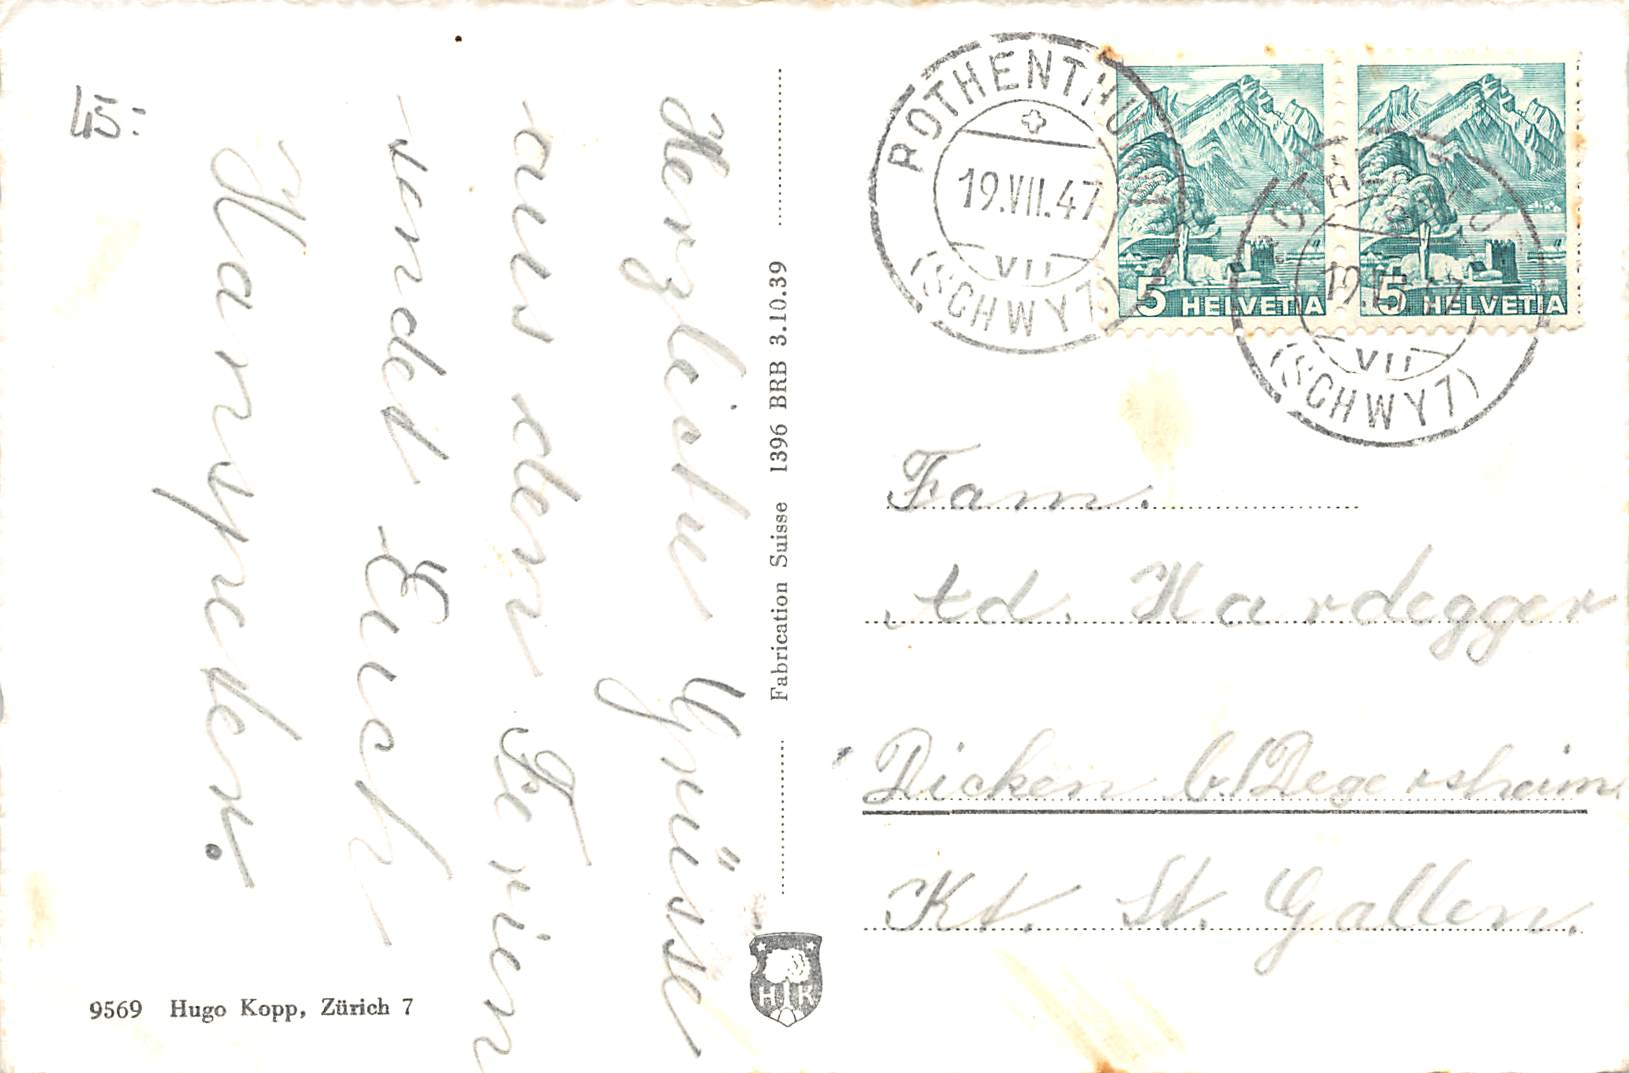 45.-
Herzliche Grüsse
aus den Ferien
sendet Euch
Hanspeter.
9569 Hugo Kopp, Zürich 7
Fabrication Suisse 1396 BRB 3.10.39
HK
ROTHENTHU
19.VII.47
VII
(SCHWYZ)
5 HELVETIA
5 HELVETIA
VII
(SCHWYZ)
Fam.
Ad. Hardegger
Dicken b/Degersheim
Kt. St. Gallen.